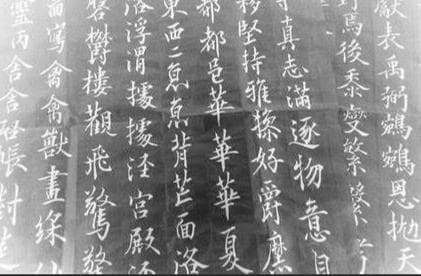 表禹弼恩抛天
馬後黍燮繁
真志滿逐物意自
移堅持雅操好爵縻
都都邑華華華夏
東西二京京背芒面洛
洛浮渭據據涇宮殿
鬱樓觀飛驚
寫禽禽獸畫綵仙
丙舍舍帳對